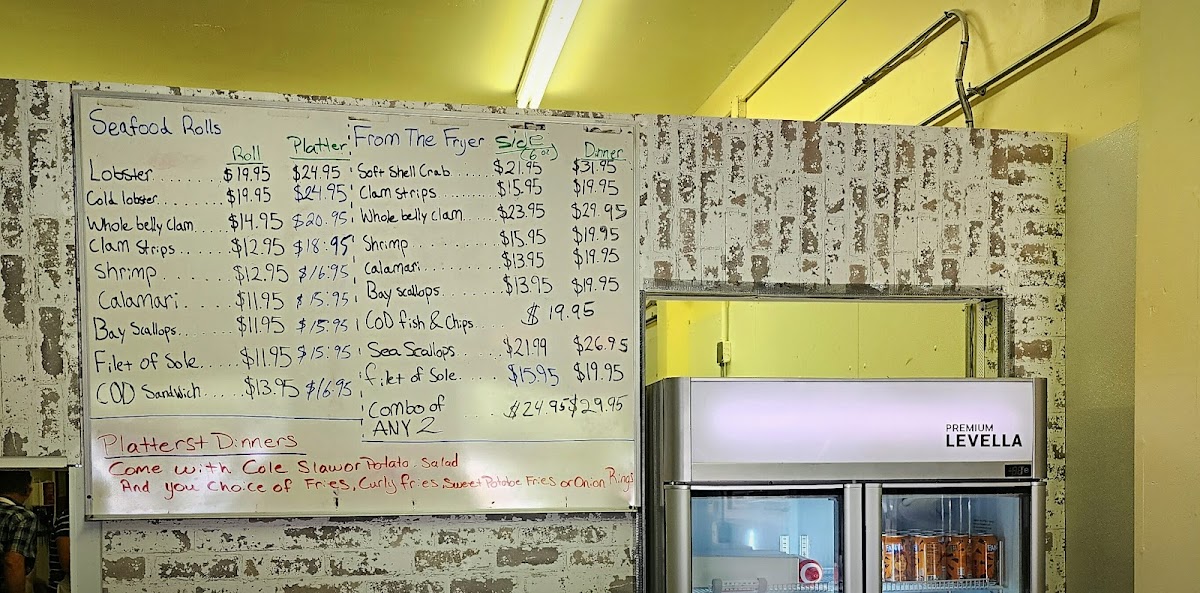 Seafood Rolls
Roll Platter
Lobster....... $19.95 $24.95
Cold lobster....... $19.95 $24.95
Whole belly Clam.... $14.95 $20.95
Clam Strips...... $12.95 $18.95
Shrimp........ $12.95 $16.95
Calamari...... $11.95 $15.95
Bay Scallops....... $11.95 $15.95
Filet of Sole..... $11.95 $15.95
COD Sandwich.... $13.95 $16.95
From The Fryer Side (6oz) Dinner
Soft Shell Crab..... $21.95 $31.95
Clam strips....... $15.95 $19.95
Whole belly clam..... $23.95 $29.95
Shrimp.......... $15.95 $19.95
Calamari......... $13.95 $19.95
Bay scallops........ $13.95 $19.95
COD fish & Chips.... $19.95
Sea Scallops....... $21.99 $26.95
filet of Sole...... $15.95 $19.95
Combo of ..... $24.95 $29.95
ANY 2
Platterst Dinners
Come with Cole Slaw or Potato Salad
And you choice of Fries, Curly fries, Sweet Potatoe Fries or Onion Rings
PREMIUM
LEVELLA